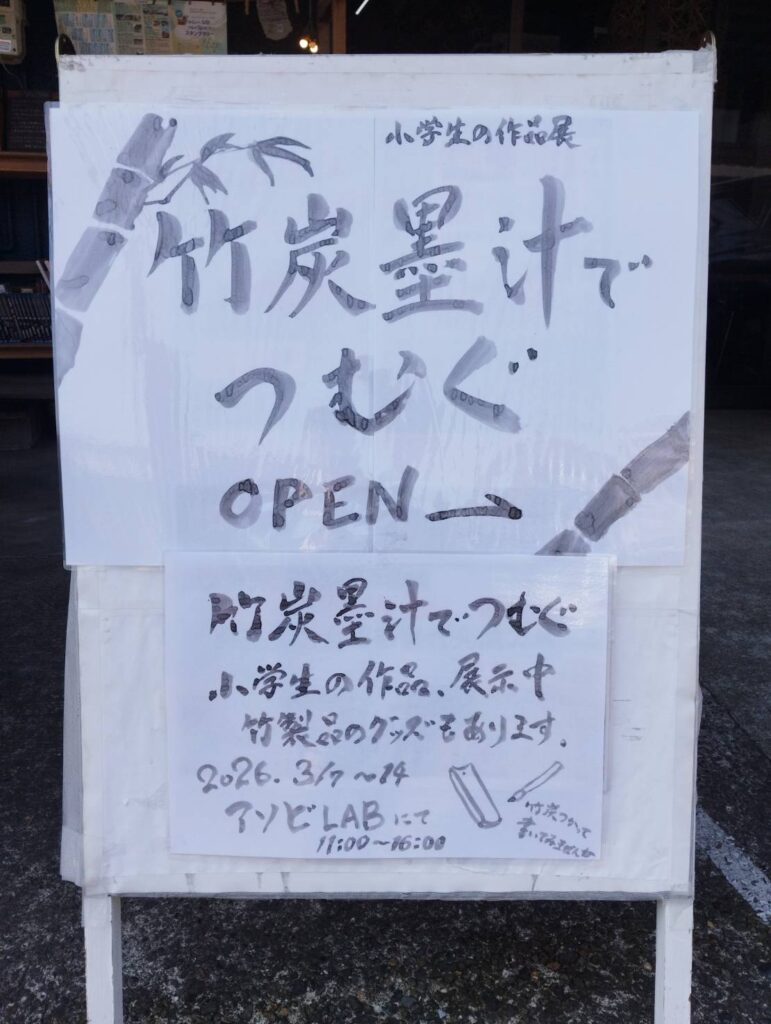 小学生の作品展
竹炭墨汁で
つむぐ
OPEN→
竹炭墨汁でつむぐ
小学生の作品、展示中
竹製品のグッズもあります。
2026. 3/7〜14
アソビLABにて
11:00〜16:00
竹炭つかって
書いてみませんか